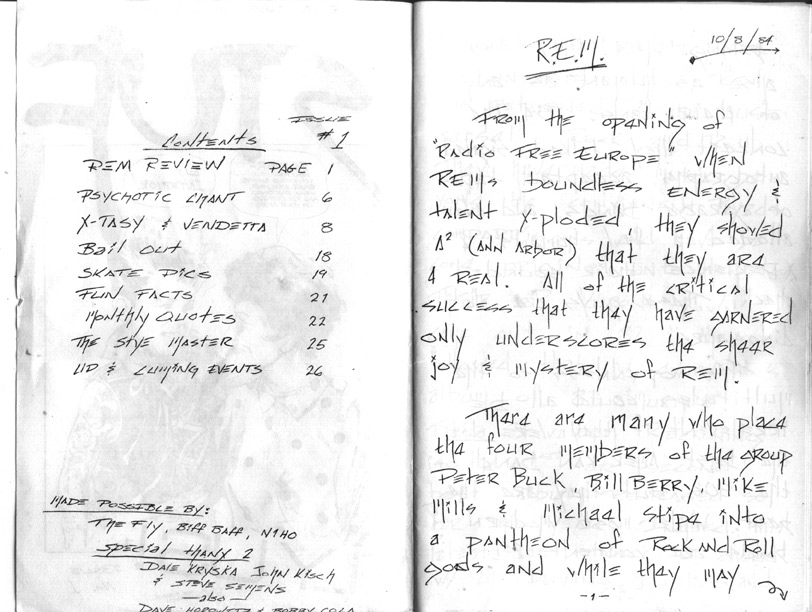 ISSUE
Contents #1
REM REVIEW PAGE 1
PSYCHOTIC CHANT 6
X-TASY & VENDETTA 8
Bail Out 18
SKATE PICS 19
FUN FACTS 21
Monthly QUOTES 22
THE STYE MASTER 25
UP & CUMING EVENTS 26
MADE POSSIBLE BY:
THE FLY, BIFF BAFF, N1HO
Special thanx 2
DALE KRYSKA JOHN KISCH
& STEVE SEMENS
—also—
DAVE HOROWITZ & BOBBY COLA
R.E.M.
10/8/84
From the opening of
"Radio Free Europe" when
REMs boundless energy &
talent X-ploded, they showed
A² (Ann Arbor) that they are
4 real. All of the critical
success that they have garnered
only underscores the sheer
joy & mystery of REM.
There are many who place
the four members of the group
Peter Buck, Bill Berry, Mike
Mills & Michael Stipe into
a pantheon of Rock and Roll
gods and while they may
-1-